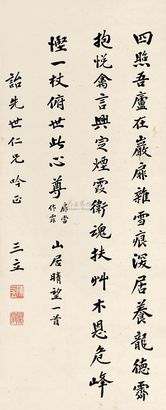 四照吾廬在巖扉雜雪痕深居養龍德霽
抱悅禽言興寔煙霞衛魂扶艸木恩危峰
慳一杖俯世此心尊 扉當作霏 山居晴望一首
詒先世仁兄吟正
三立